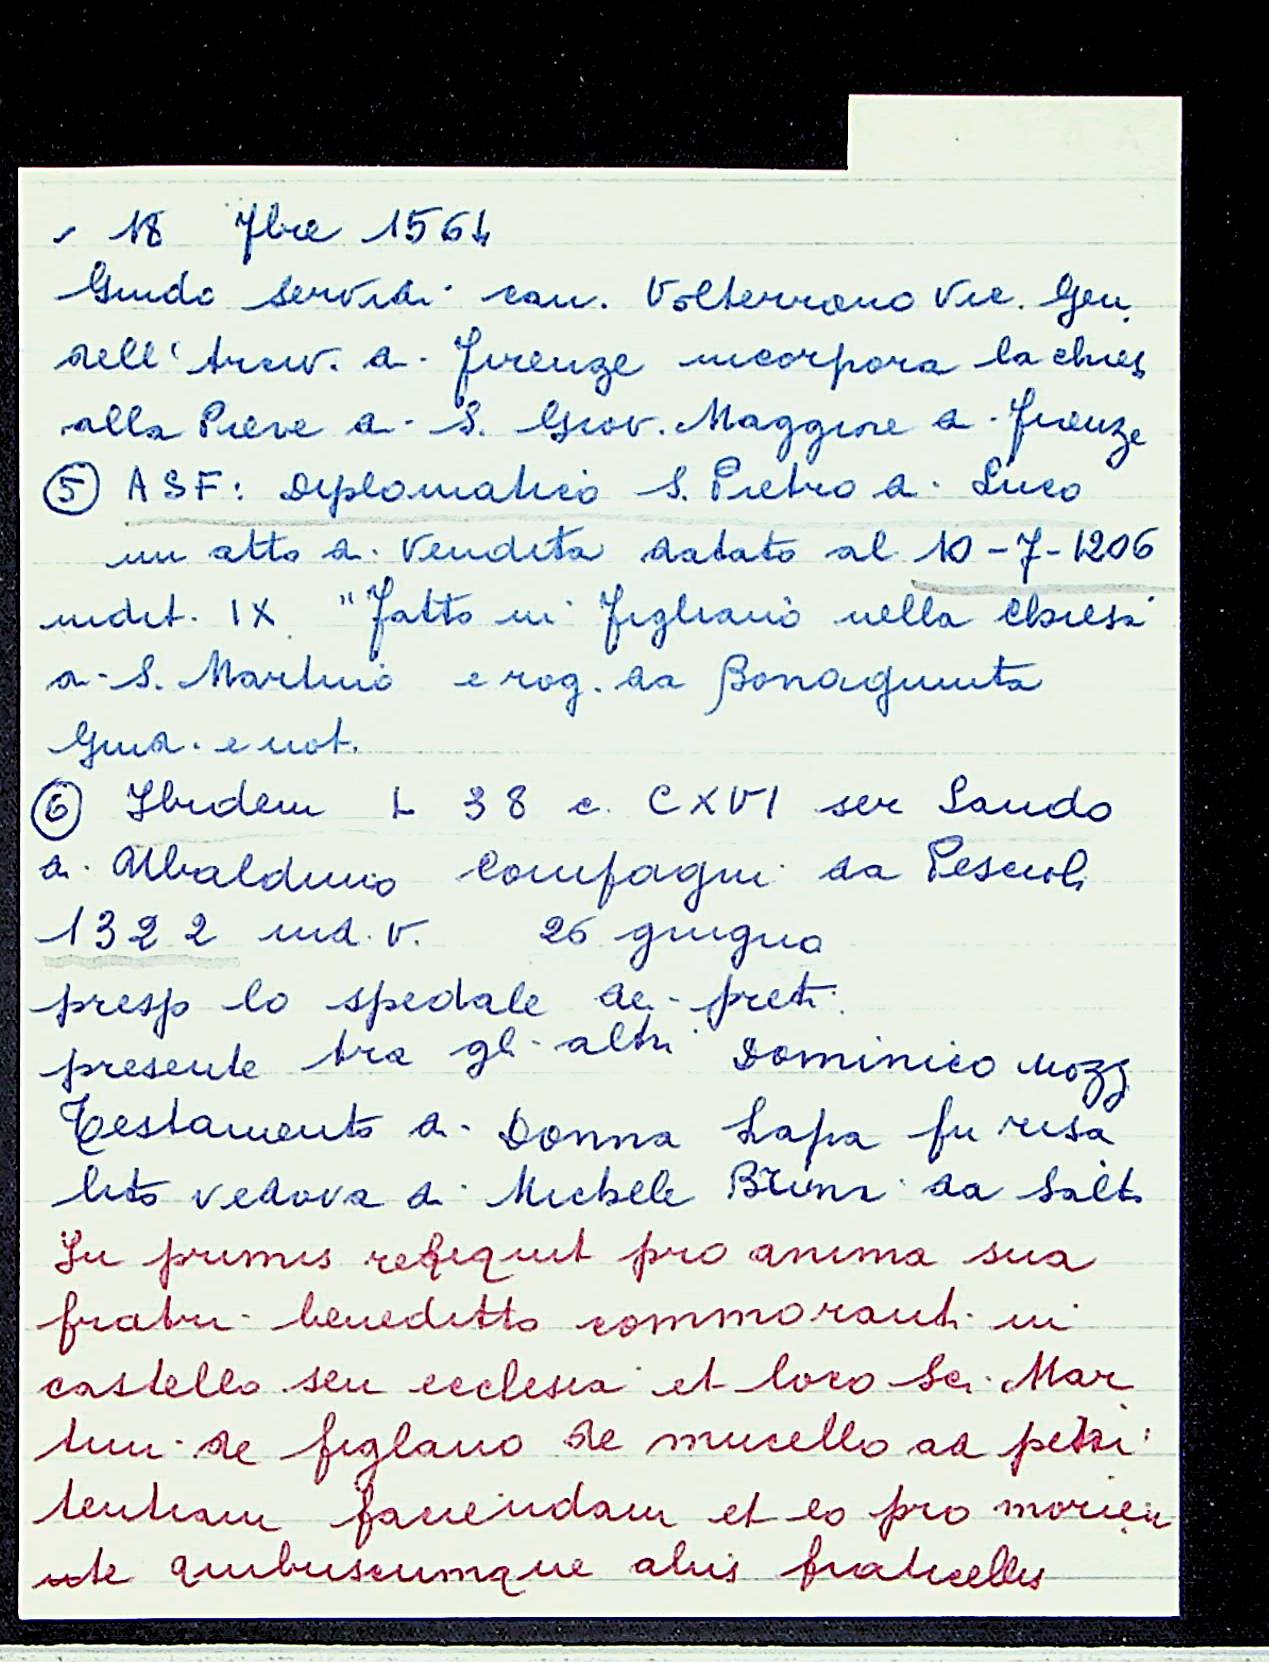 - 18 7bre 1564
Guido Servidi can. Volterrano Vic. Gen.
dell' Arciv. di Firenze incorpora la chies
alla Pieve di S. Giov. Maggiore di Firenze
⑤ ASF: Diplomatico S. Pietro di Luco
un atto di vendita datato al 10-7-1206
indit. IX "Fatto in Figliano nella chiesa
di S. Martino e rog. da Bonagiunta
Giud. e not.
⑥ Ibidem L 38 c. CXVI ser Lando
di Ubaldino Compagni da Pesciol.
1322 ind. V. 26 giugno
presp lo spedale dei preti
presente tra gli altri Dominico
Testamento di Donna Lapa fu risa
lito vedova di Michele da
In primis reliquit pro anima sua
fratri beneditto commoranti in
castello seu ecclesia et loco Sci. Mar
tini de figlano de mucello ad
tentiam faciendam et eo pro morien
nte quibuscumque aliis fraticellis